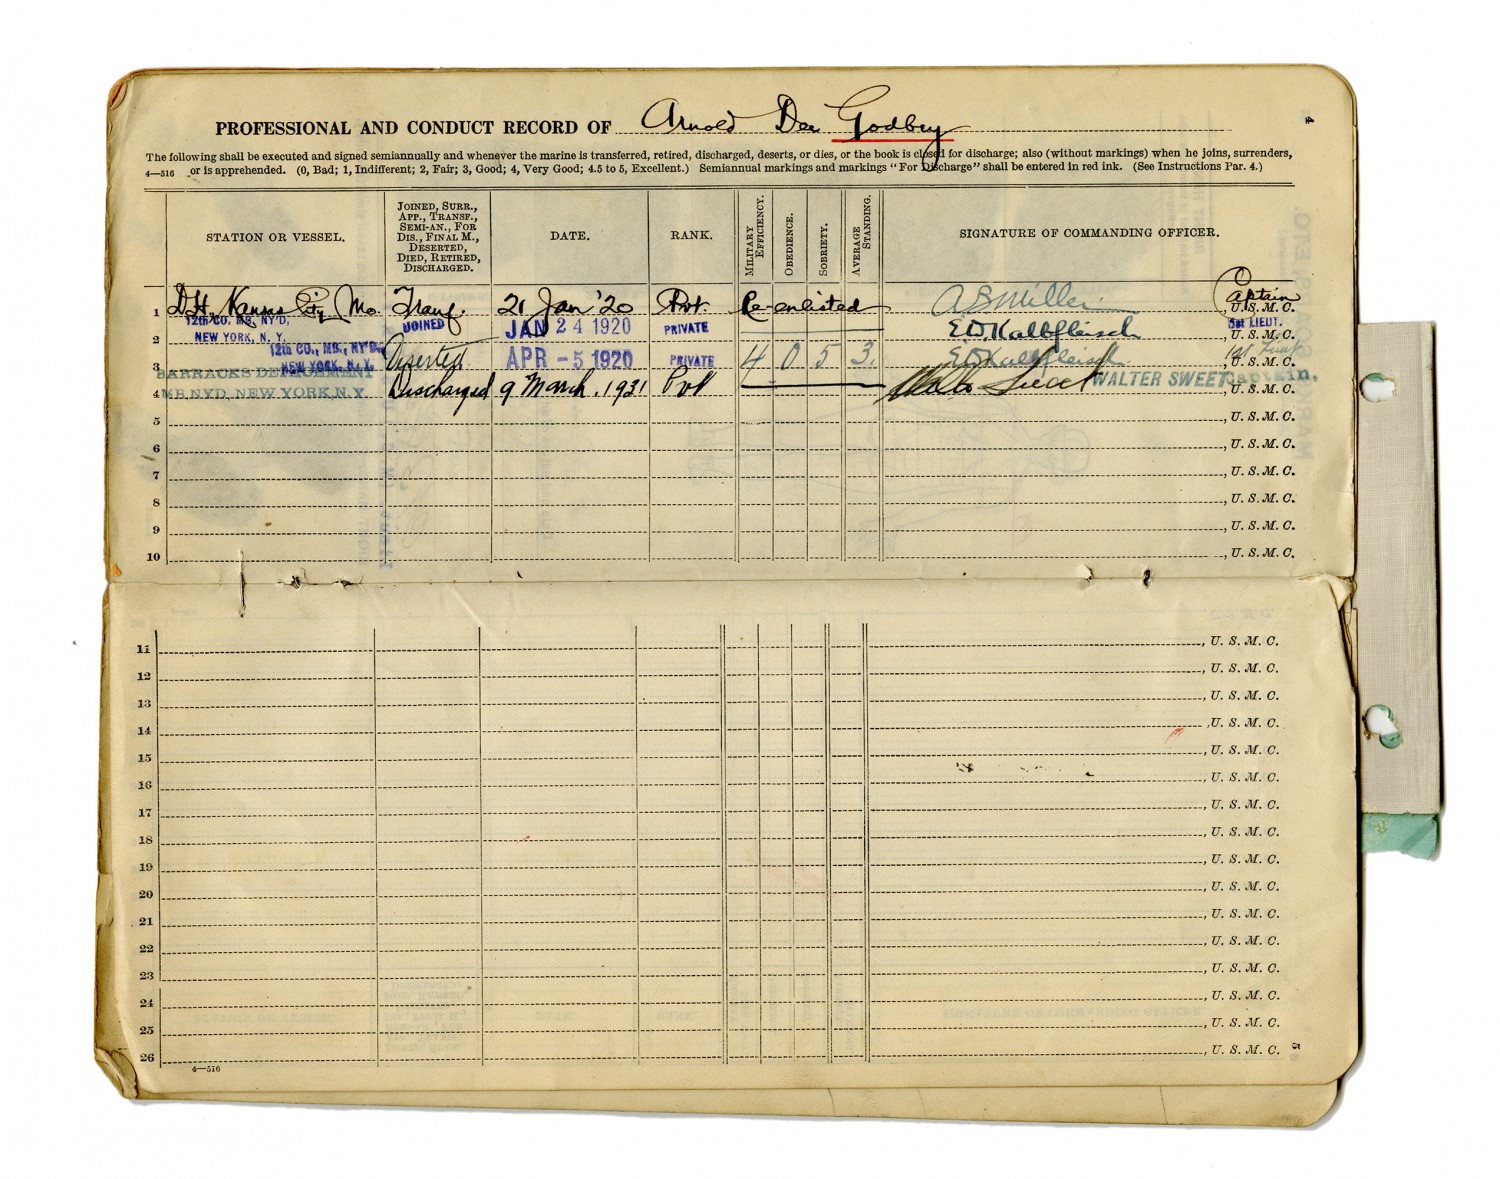 4
PROFESSIONAL AND CONDUCT RECORD OF Arnold Dee Godbey
The following shall be executed and signed semiannually and whenever the marine is transferred, retired, discharged, deserts, or dies, or the book is closed for discharge; also (without markings) when he joins, surrenders,
4—516 or is apprehended. (0, Bad; 1, Indifferent; 2, Fair; 3, Good; 4, Very Good; 4.5 to 5, Excellent.) Semiannual markings and markings "For Discharge" shall be entered in red ink. (See Instructions Par. 4.)
STATION OR VESSEL.
JOINED, SURR.,
APP., TRANSF.,
SEMI-AN., FOR
DIS., FINAL M.,
DESERTED,
DIED, RETIRED,
DISCHARGED.
DATE.
RANK.
MILITARY EFFICIENCY.
OBEDIENCE.
SOBRIETY.
AVERAGE STANDING.
SIGNATURE OF COMMANDING OFFICER.
1 D.H., Kansas City, Mo. Transf. 21 Jan '20 Pvt. Re-enlisted A B Miller Captain, U. S. M. C.
2 12th CO. MB, NY'D, NEW YORK, N. Y. JOINED JAN 24 1920 PRIVATE E.D. Kalbfleisch 1st LIEUT. , U. S. M. C.
3 12th CO., MB., NY'D, NEW YORK, N. Y. Deserted APR -5 1920 PRIVATE 4 0 5 3. E.D. Kalbfleisch 1st Lieut , U. S. M. C.
4 BARRACKS DETACHMENT MB NYD, NEW YORK, N.Y. Discharged 9 March, 1931 Pvt Walter Sweet WALTER SWEET Captain, , U. S. M. C.
5 , U. S. M. C.
6 , U. S. M. C.
7 , U. S. M. C.
8 , U. S. M. C.
9 , U. S. M. C.
10 , U. S. M. C.
11 , U. S. M. C.
12 , U. S. M. C.
13 , U. S. M. C.
14 , U. S. M. C.
15 , U. S. M. C.
16 , U. S. M. C.
17 , U. S. M. C.
18 , U. S. M. C.
19 , U. S. M. C.
20 , U. S. M. C.
21 , U. S. M. C.
22 , U. S. M. C.
23 , U. S. M. C.
24 , U. S. M. C.
25 , U. S. M. C.
26 , U. S. M. C.
5
4—516